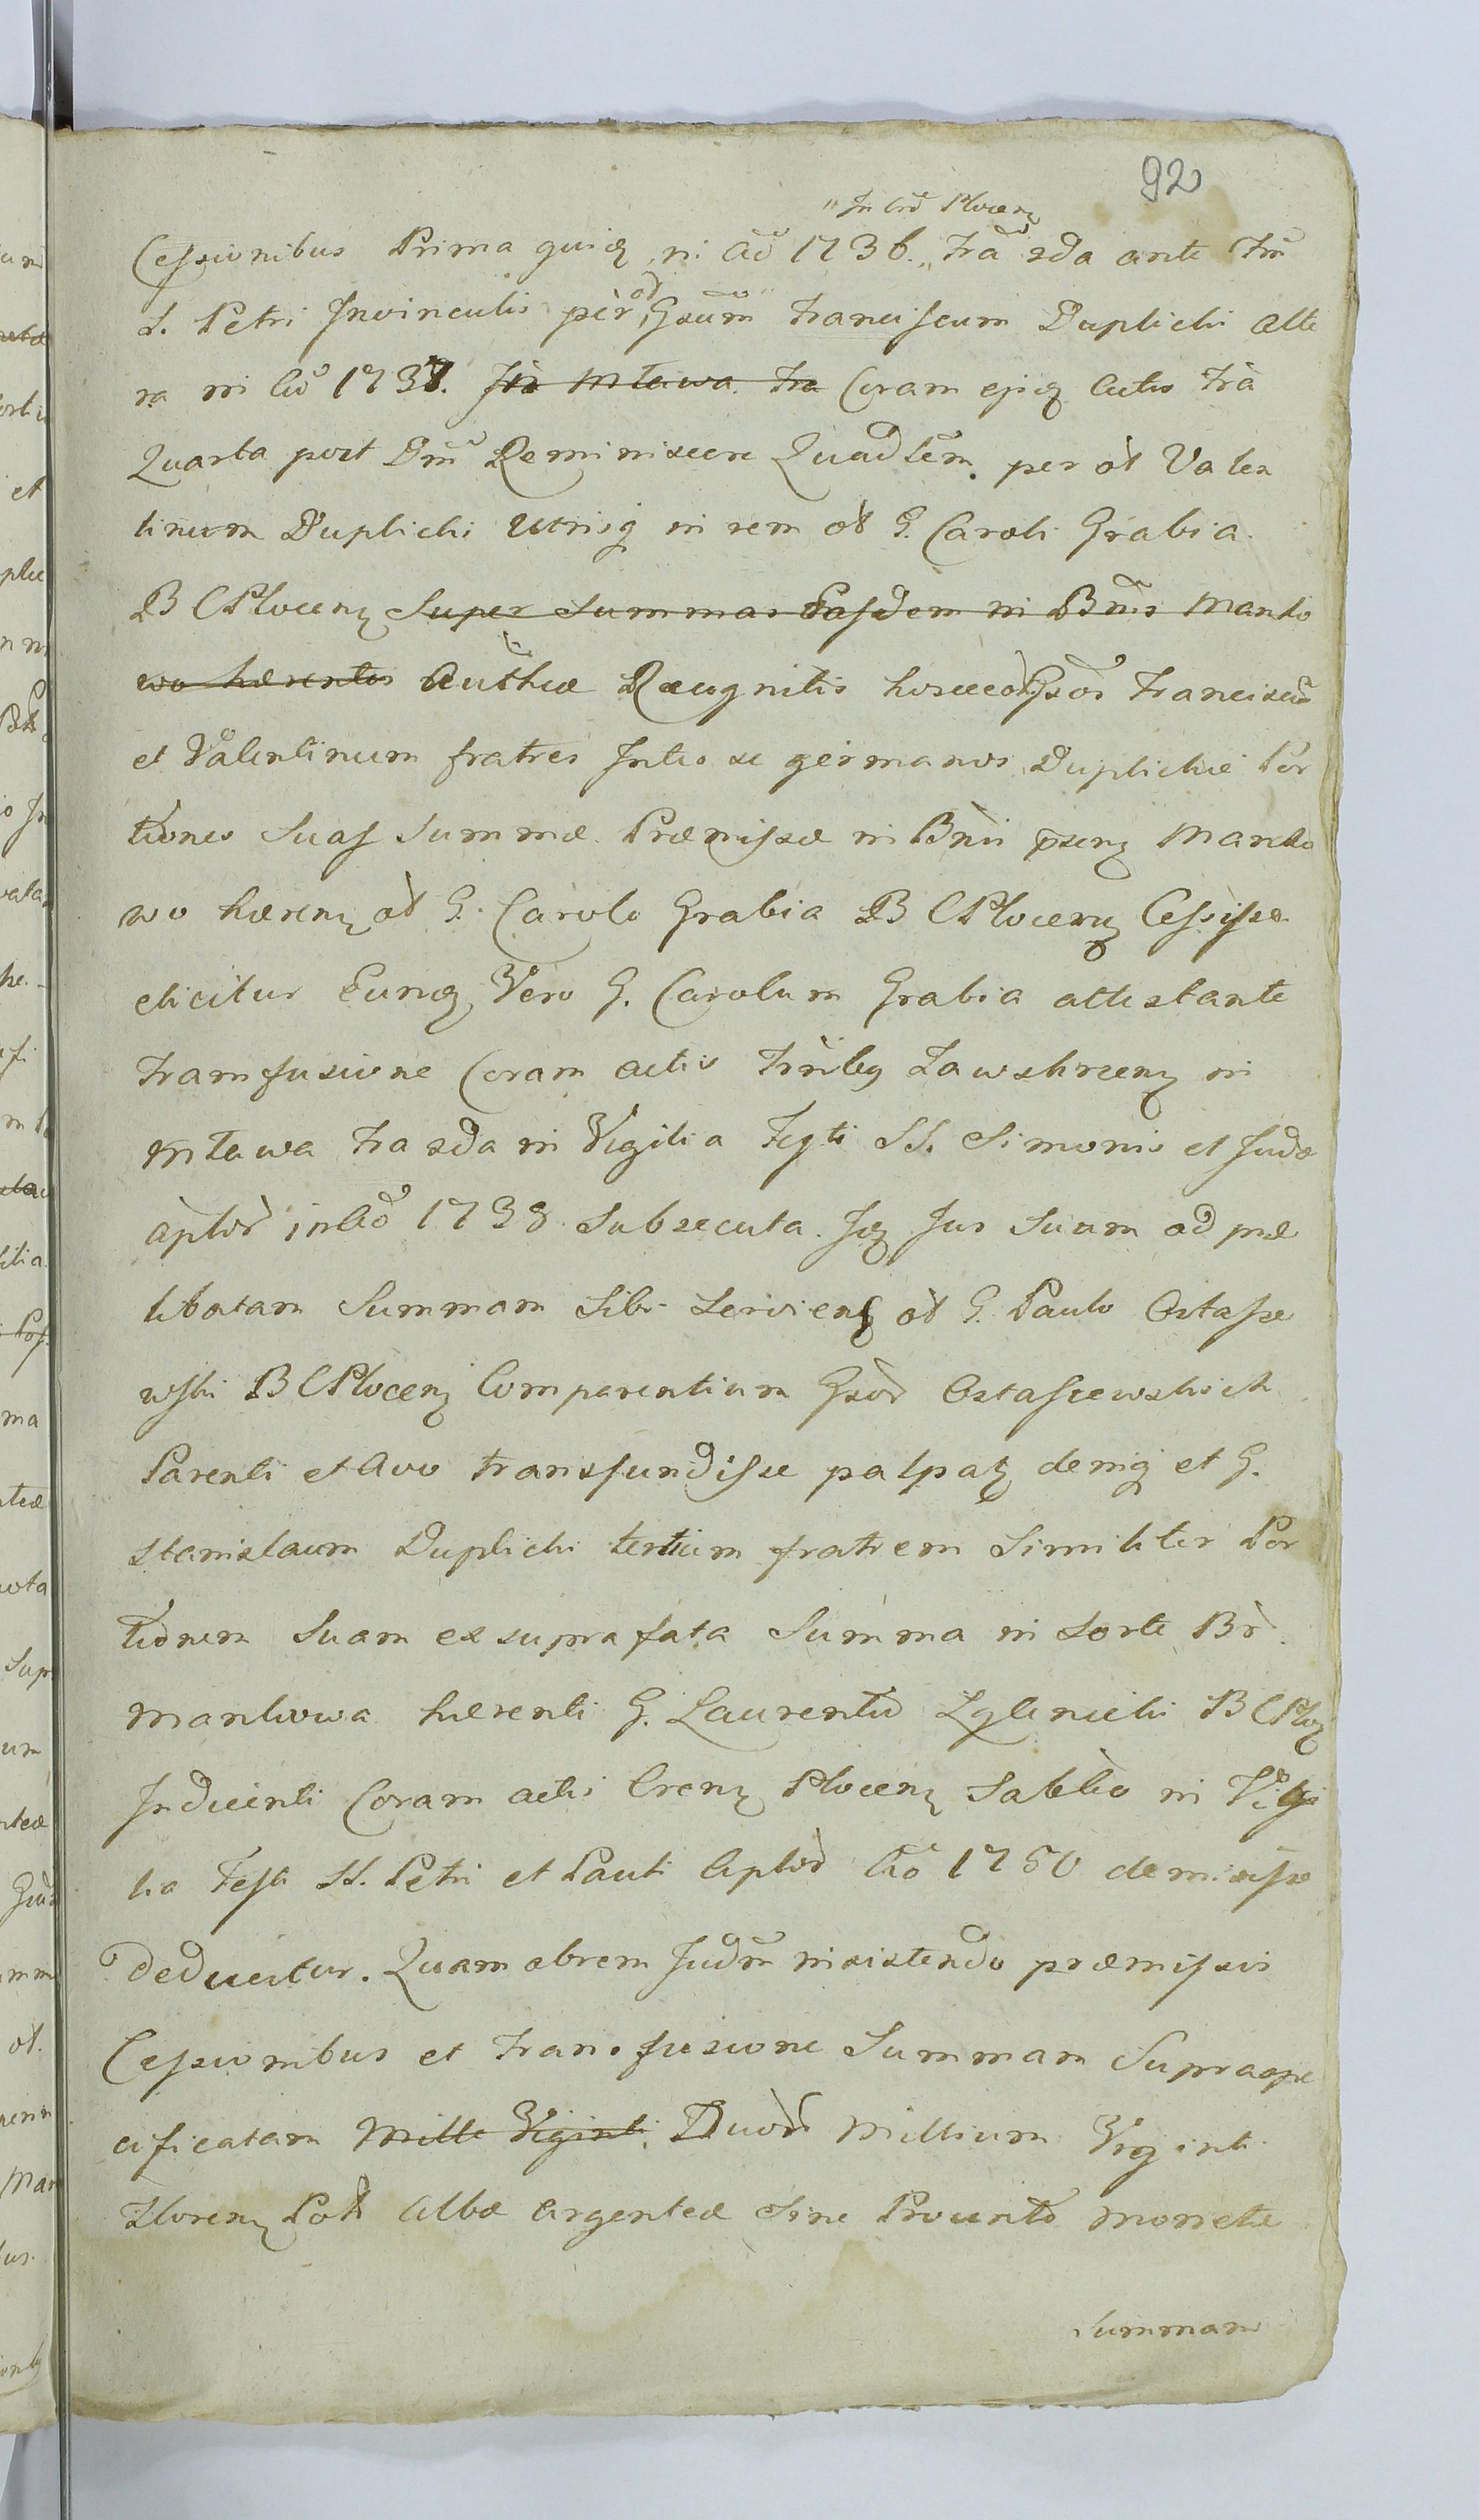 92
"In Crō Plocenȝ
Cessionibus Prima quiq̨ in Aō 1736. „ Fr̃a 2da ante Fm̃
S. Petri Invinculis per od Gsum Franciscum Duplicki Alte
ra in Aō 1737. In Mława Fra Coram ejsq̨ Actis Fr̃a
Quarta post Dm̃ Reminiscere Quadlem. per ol Valen
tinum Duplicki Utrisq̨ in rem ol G. Caroli Grabia
B C Plocenȝ Super Summas Easdem in Bnis Manko
wo hærentes Authcæ Recognitis hosce ol Gsos Franciscũ
et Valentinum fratres Inter se germanos Duplickie Por
tiones Suas Summæ Præmissæ in Bnis pzenȝ Manko
wo hærenȝ ol G. Carolo Grabia B C Plocenȝ Cessisse
elicitur Eunq̨ Vero G. Carolum Grabia attestante
Transfusione Coram actis Trñlbȝ Zawshrcenȝ in
Mława Fra 2da in Vigilia Festi SS. Simonis et Judæ
aplor̃ in Aō 1738 Subsecuta. Jq̨ Jus Suum ad præ
libatam Summam Sibi Servienȝ ol G. Paulo Ostasze
wski B C Plocenȝ Comparentium Gsor̃ Ostaszewskich
Parenti et Avo transfundisse palpatȝ deniq̨ et G.
Stanislaum Duplicki tertium fratrem Similiter Por
tionem Suam ex suprafata Summa in Sorte Br̃
Mankowa hærenti G. Laurentio Zglenicki B C Ploȝ
Inducenti Coram actis Crenȝ Plocenȝ Sabbo in Vigi
lia Festi SS. Petri et Pauli Aplor̃ Aō 1750 demisisse
deducitur. Quam obrem Judm̃ insistendo præmissis
Cessionibus et Transfusione Summam Supraspe
cificatam Mille Viginti Duor̃ Millium Viginti
Florenȝ Pol Albæ Argenteæ Sine Prounto Monetæ
Summam